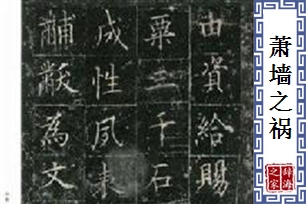 萧墙之祸
辞海
之家
由資給賜
粟三千石
成性夙
黼黻為文